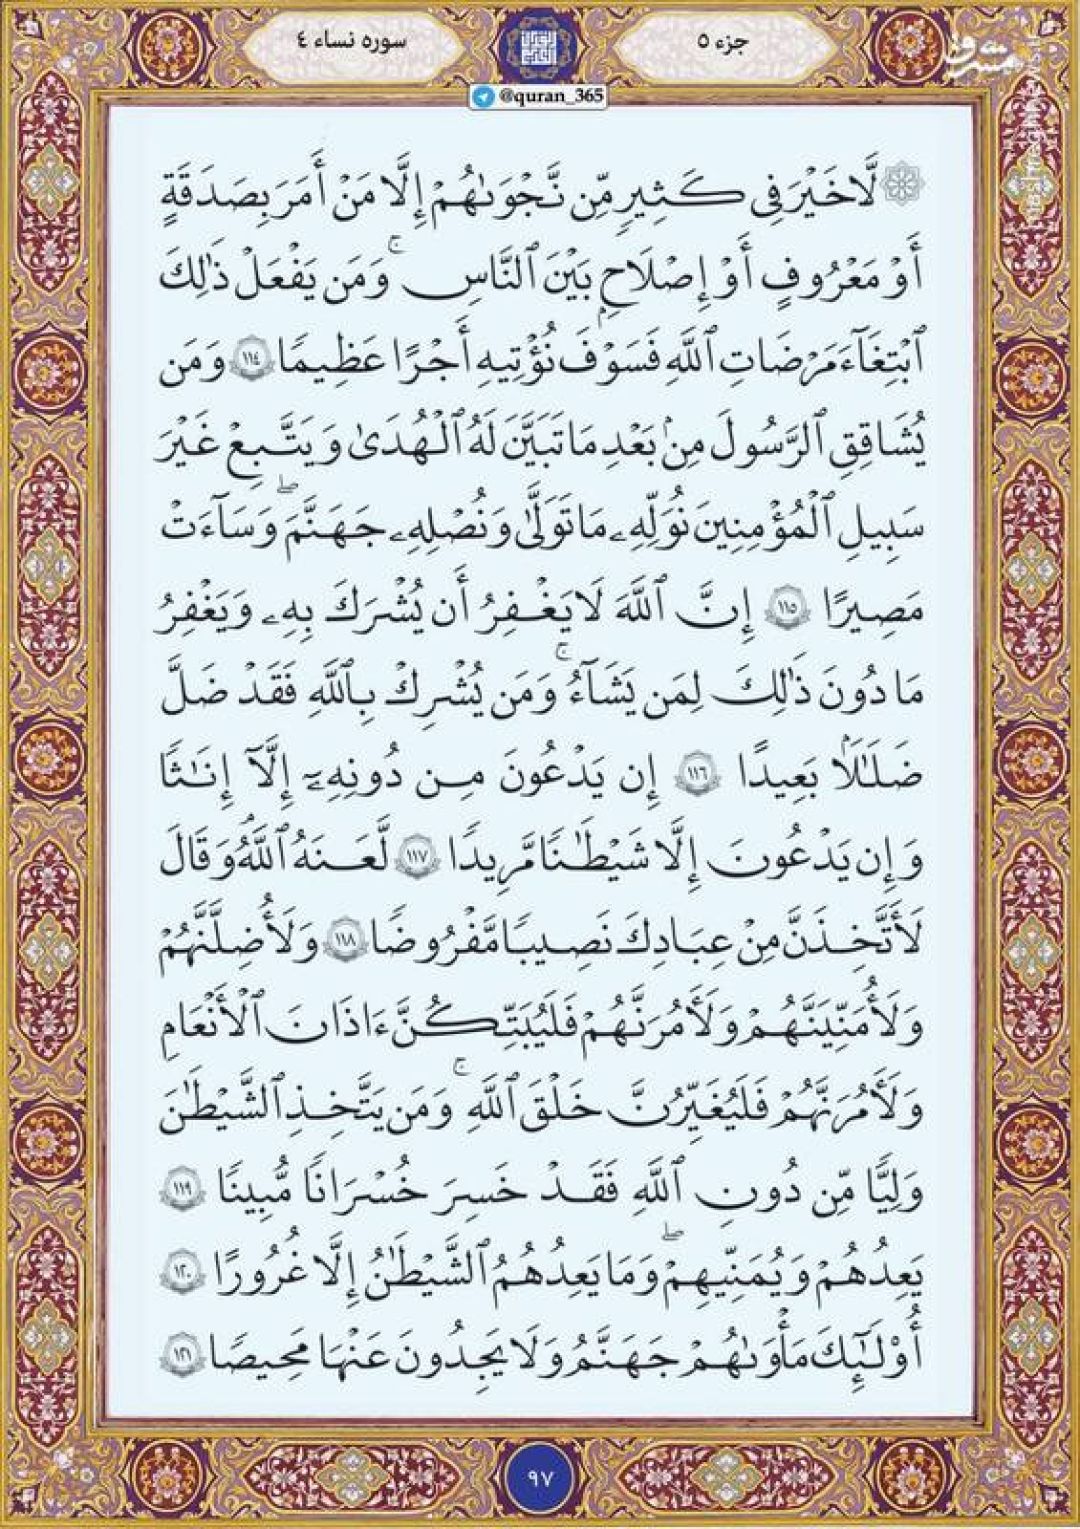 جزء ٥
سوره نساء ٤
مشرق
@quran_365
mashreghnews
۞ لَّا خَيْرَ فِي كَثِيرٍ مِّن نَّجْوَىٰهُمْ إِلَّا مَنْ أَمَرَ بِصَدَقَةٍ
أَوْ مَعْرُوفٍ أَوْ إِصْلَاحٍۭ بَيْنَ ٱلنَّاسِۚ وَمَن يَفْعَلْ ذَٰلِكَ
ٱبْتِغَآءَ مَرْضَاتِ ٱللَّهِ فَسَوْفَ نُؤْتِيهِ أَجْرًا عَظِيمًا ١١٤ وَمَن
يُشَاقِقِ ٱلرَّسُولَ مِنۢ بَعْدِ مَا تَبَيَّنَ لَهُ ٱلْهُدَىٰ وَيَتَّبِعْ غَيْرَ
سَبِيلِ ٱلْمُؤْمِنِينَ نُوَلِّهِۦ مَا تَوَلَّىٰ وَنُصْلِهِۦ جَهَنَّمَۖ وَسَآءَتْ
مَصِيرًا ١١٥ إِنَّ ٱللَّهَ لَا يَغْفِرُ أَن يُشْرَكَ بِهِۦ وَيَغْفِرُ
مَا دُونَ ذَٰلِكَ لِمَن يَشَآءُۚ وَمَن يُشْرِكْ بِٱللَّهِ فَقَدْ ضَلَّ
ضَلَٰلًۢا بَعِيدًا ١١٦ إِن يَدْعُونَ مِن دُونِهِۦٓ إِلَّآ إِنَٰثًا
وَإِن يَدْعُونَ إِلَّا شَيْطَٰنًا مَّرِيدًا ١١٧ لَّعَنَهُ ٱللَّهُۘ وَقَالَ
لَأَتَّخِذَنَّ مِنْ عِبَادِكَ نَصِيبًا مَّفْرُوضًا ١١٨ وَلَأُضِلَّنَّهُمْ
وَلَأُمَنِّيَنَّهُمْ وَلَأٓمُرَنَّهُمْ فَلَيُبَتِّكُنَّ ءَاذَانَ ٱلْأَنْعَٰمِ
وَلَأٓمُرَنَّهُمْ فَلَيُغَيِّرُنَّ خَلْقَ ٱللَّهِۚ وَمَن يَتَّخِذِ ٱلشَّيْطَٰنَ
وَلِيًّا مِّن دُونِ ٱللَّهِ فَقَدْ خَسِرَ خُسْرَانًا مُّبِينًا ١١٩
يَعِدُهُمْ وَيُمَنِّيهِمْۖ وَمَا يَعِدُهُمُ ٱلشَّيْطَٰنُ إِلَّا غُرُورًا ١٢٠
أُوْلَٰٓئِكَ مَأْوَىٰهُمْ جَهَنَّمُ وَلَا يَجِدُونَ عَنْهَا مَحِيصًا ١٢١
٩٧